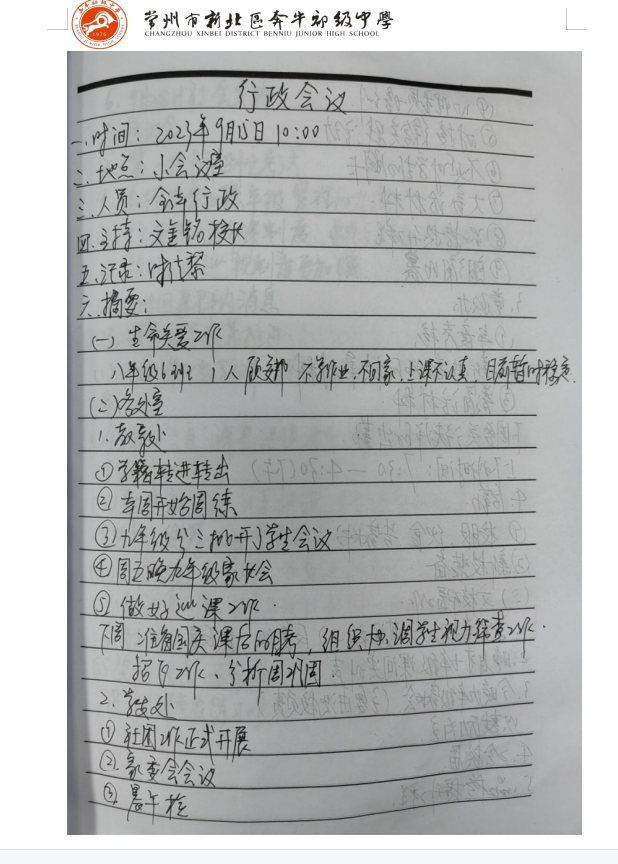 常州市新北区奔牛初级中学
CHANGZHOU XINBEI DISTRICT BENNIU JUNIOR HIGH SCHOOL
行政会议
一.时间：2023年9月15日 10:00
二.地点：小会议室
三.人员：全体行政
四.主持：文金铭校长
五.记录：
六.摘要：
(一) 生命关爱工作
八年级6班 1人 不写作业,不回家,上课不认真,目前暂时稳定.
(二) 各处室
1.教务处
①学籍转进转出
②本周开始周练
③九年级分三批开了学生会议
④周五晚九年级家长会
⑤做好巡课工作.
下周 准备国庆课后的月考,组织协调学生视力筛查工作.
工作、分析周巩固
2.学发处
①社团工作正式开展
②.家委会会议
③.